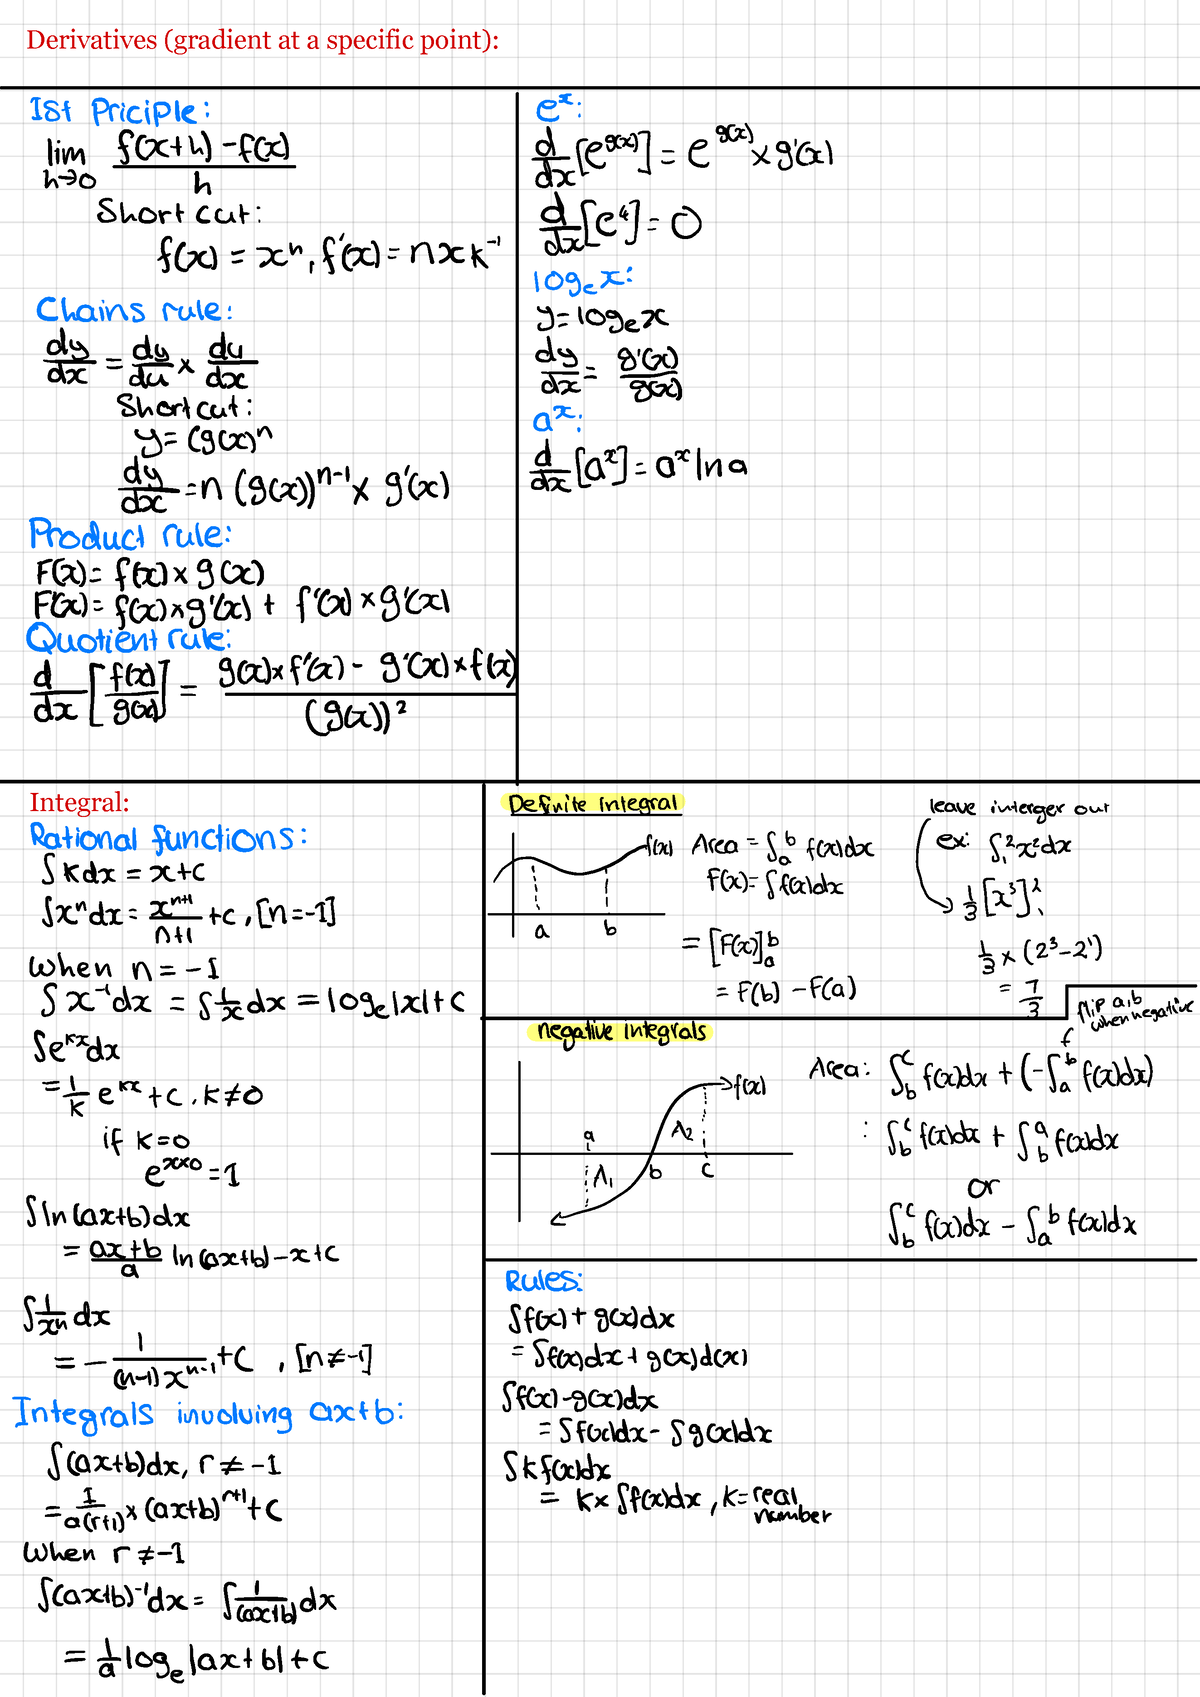 Derivatives (gradient at a specific point):
1st Priciple:
lim h→0 f(x+h) - f(x) / h
Short cut:
f(x) = xⁿ, f'(x) = nxk⁻¹
Chains rule:
dy/dx = dy/du × du/dx
Short cut:
y = (g(x)ⁿ
dy/dx = n (g(x))ⁿ⁻¹ × g'(x)
Product rule:
F(x) = f(x) × g(x)
F'(x) = f(x) × g'(x) + f'(x) × g'(x)
Quotient rule:
d/dx [f(x)/g(x)] = g(x) × f'(x) - g'(x) × f(x) / (g(x))²
eˣ:
d/dx [e^g(x)] = e^g(x) × g'(x)
d/dx [e⁴] = 0
logₑx:
y = logₑx
dy/dx = g'(x)/g(x)
aˣ:
d/dx [aˣ] = aˣ ln a
Integral:
Rational functions:
∫k dx = x + c
∫xⁿ dx = xⁿ⁺¹/n+1 + c, [n=-1]
When n = -1
∫x⁻¹dx = ∫1/x dx = logₑ|x| + c
∫e^kx dx
= 1/k e^kx + c, k≠0
if k=0
e^x×0 = 1
∫ln(ax+b)dx
= ax+b/a ln(ax+b) - x + c
∫1/xⁿ dx
= - 1/(n-1)xⁿ⁻¹ + c, [n≠-1]
Integrals involving ax+b:
∫(ax+b)dx, r ≠ -1
= 1/a(r+1) × (ax+b)^r+1 + c
When r ≠ -1
∫(ax+b)⁻¹dx = ∫1/(ax+b) dx
= 1/a logₑ|ax+b| + c
Definite integral
f(x)
a b
Area = ∫ₐᵇ f(x)dx
F(x) = ∫f(x)dx
= [F(x)]ₐᵇ
= F(b) - F(a)
leave interger out
ex: ∫₁² x² dx
1/3 [x³]₁²
1/3 × (2³ - 2¹)
= 7/3
flip a,b
when negative
negative integrals
f(x)
a A₂
A₁ b c
Area: ∫_b^c f(x)dx + (-∫_a^b f(x)dx)
: ∫_b^c f(x)dx + ∫_b^a f(x)dx
or
∫_b^c f(x)dx - ∫_a^b f(x)dx
Rules:
∫f(x) + g(x)dx
= ∫f(x)dx + g(x)d(x)
∫f(x) - g(x)dx
= ∫f(x)dx - ∫g(x)dx
∫k f(x)dx
= k × ∫f(x)dx, k = real
number